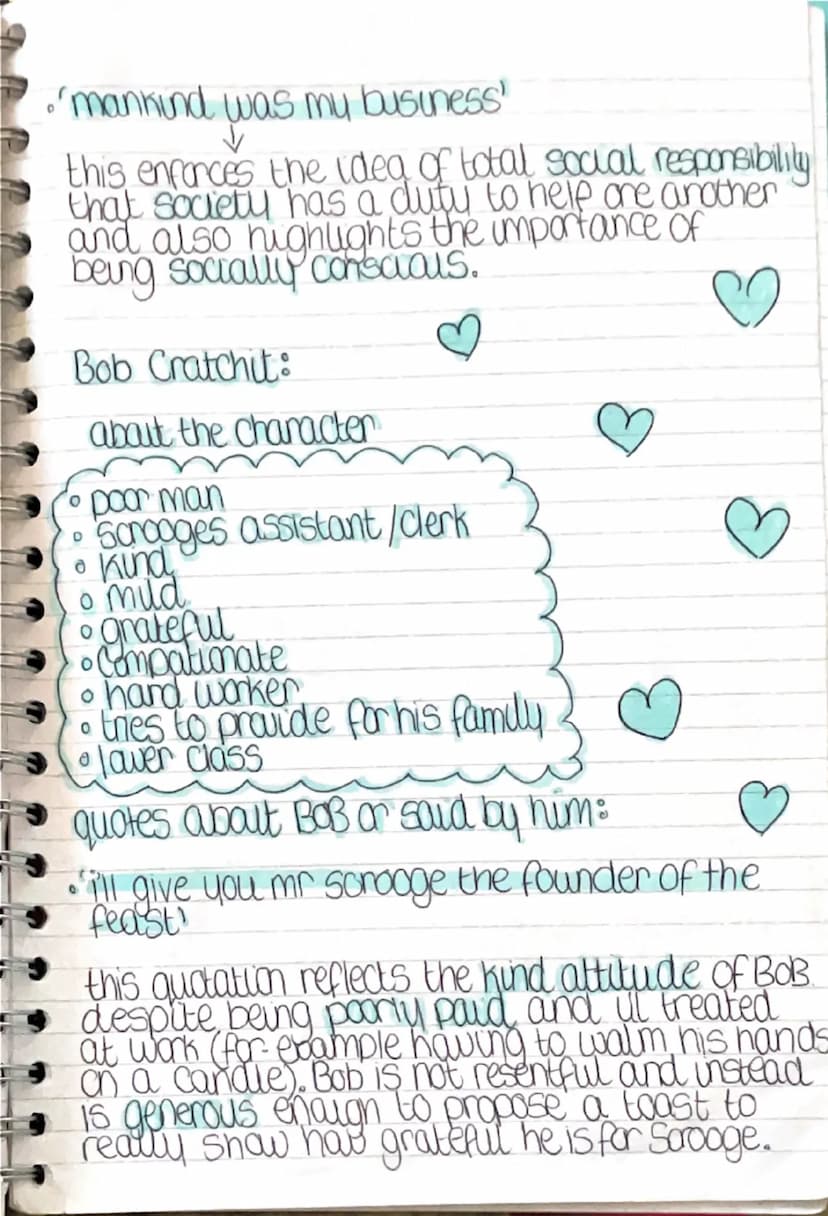 ∘'mankind was my business'
↓
this enforces the idea of total social responsibility
that society has a duty to help one another
and also highlights the importance of
being socially conscious.
Bob Cratchit:
about the character
∘ poor man
∘ scrooges assistant/clerk
∘ kind
∘ mild
∘ grateful
∘ compationate
∘ hard worker
∘ tries to provide for his family
∘ lower class
quotes about BoB or said by him:
∘'i'll give you mr scrooge the founder of the
feast'
this quotation reflects the kind attitude of BoB
despite being poorly paid and ill treated
at work (for example having to walm his hands
on a candle). Bob is not resentful and instead
is generous enough to propose a toast to
really show how grateful he is for Scrooge.